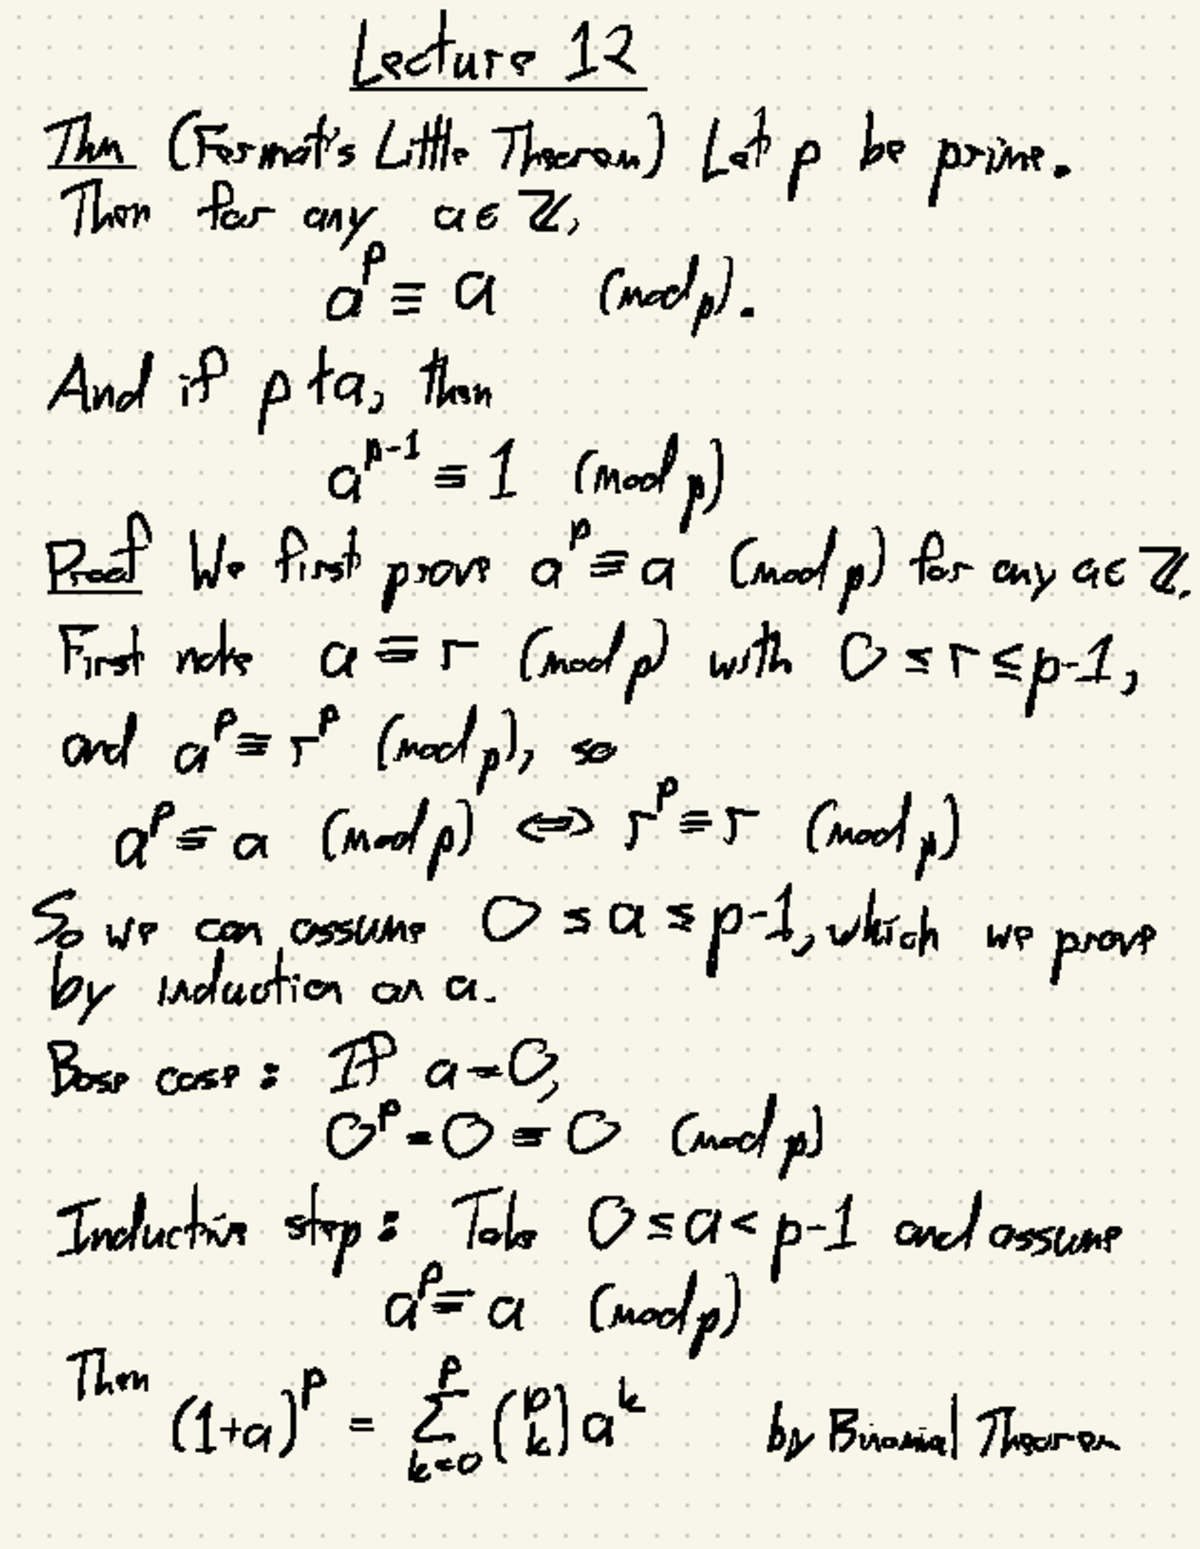 Lecture 12
Thm (Fermat's Little Theorem) Let p be prime.
Then for any a ∈ ℤ,
a^p ≡ a (mod p).
And if p ∤ a, then
a^{p-1} ≡ 1 (mod p)
Proof We first prove a^p ≡ a (mod p) for any a ∈ ℤ.
First note a ≡ r (mod p) with 0 ≤ r ≤ p-1,
and a^p ≡ r^p (mod p), so
a^p ≡ a (mod p) ⇔ r^p ≡ r (mod p)
So we can assume 0 ≤ a ≤ p-1, which we prove
by induction on a.
Base case: If a = 0,
0^p = 0 ≡ 0 (mod p)
Inductive step: Take 0 ≤ a < p-1 and assume
a^p ≡ a (mod p)
Then
(1+a)^p = ∑_{k=0}^{p} \binom{p}{k} a^k by Binomial Theorem